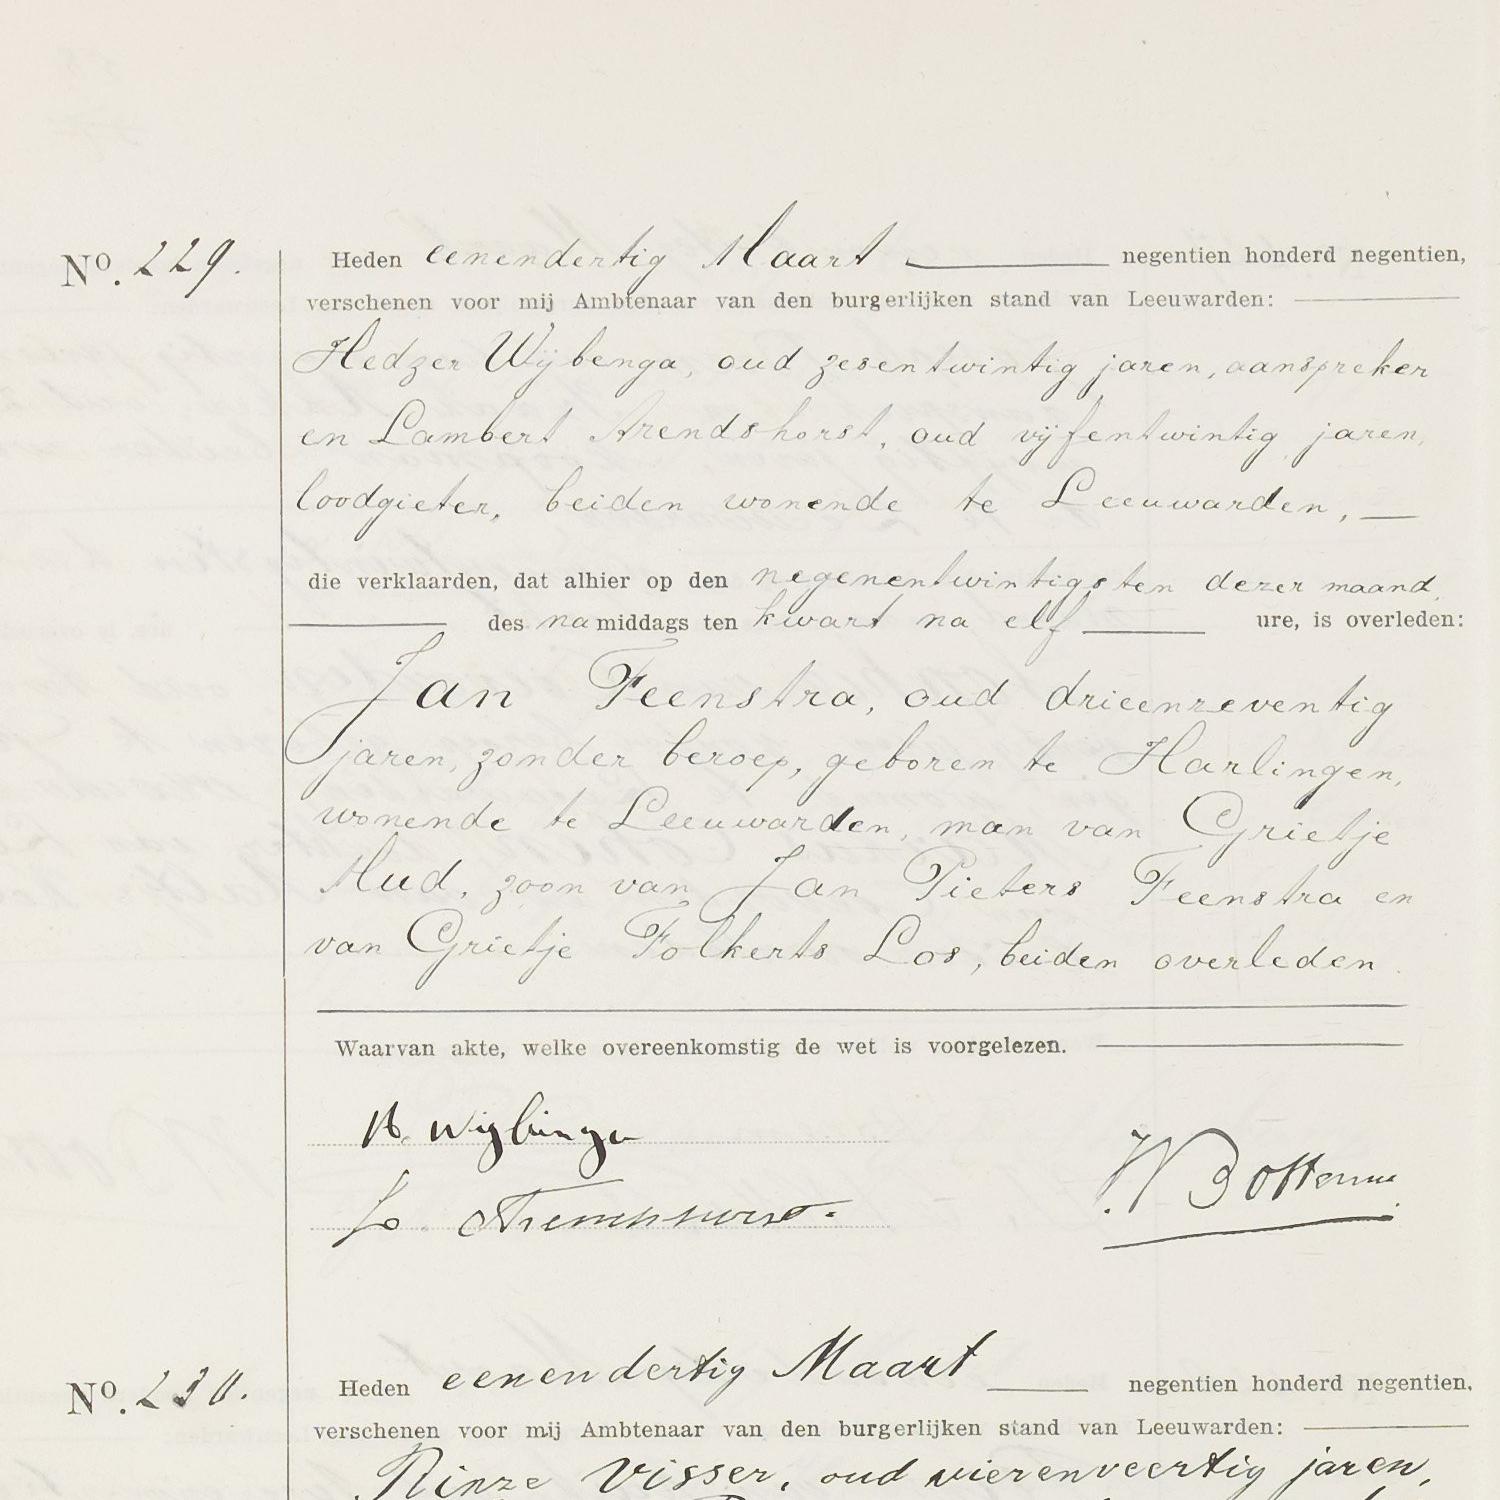 No. 229. Heden eenendertig Maart negentien honderd negentien,
verschenen voor mij Ambtenaar van den burgerlijken stand van Leeuwarden:
Hedzer Wijbenga, oud zesentwintig jaren, aanspreker
en Lambert Arendshorst, oud vijfentwintig jaren,
loodgieter, beiden wonende te Leeuwarden,
die verklaarden, dat alhier op den negenentwintigsten dezer maand,
des namiddags ten kwart na elf ure, is overleden:
Jan Feenstra, oud drieenzeventig
jaren, zonder beroep, geboren te Harlingen,
wonende te Leeuwarden, man van Grietje
Mud, zoon van Jan Pieters Feenstra en
van Grietje Folkerts Los, beiden overleden.
Waarvan akte, welke overeenkomstig de wet is voorgelezen.
H. Wijbenga
L. Arendshorst.
No. 230. Heden eenendertig Maart negentien honderd negentien,
verschenen voor mij Ambtenaar van den burgerlijken stand van Leeuwarden:
Rinze Visser, oud vierenveertig jaren,